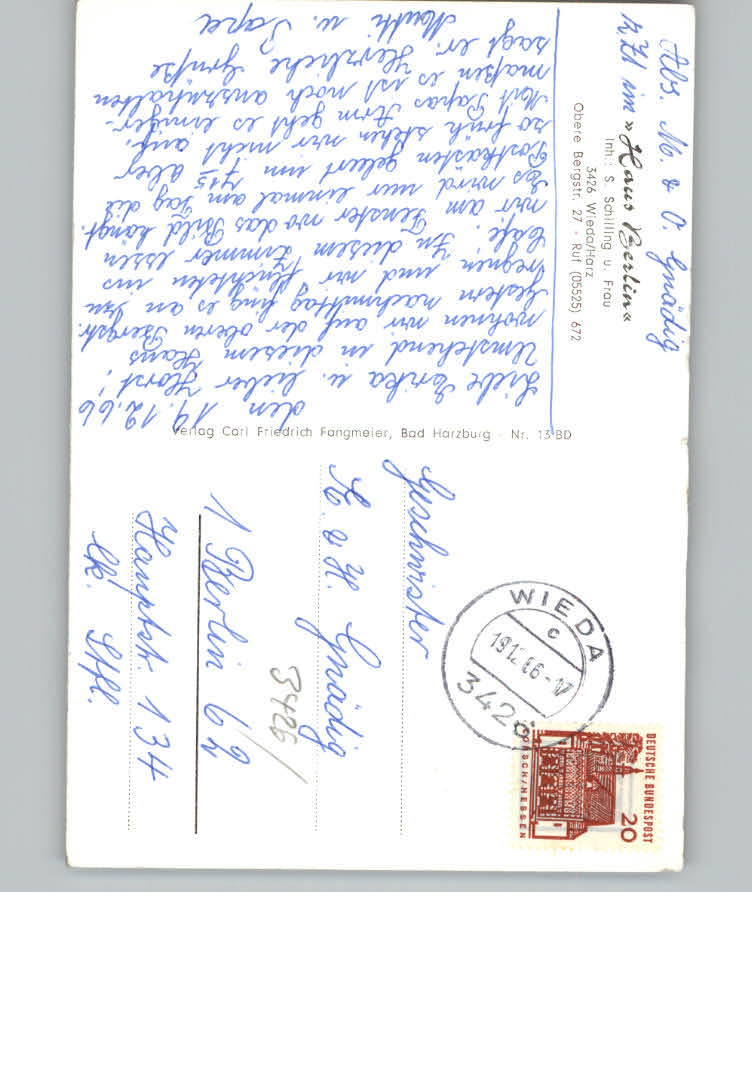 Abs. M. & O. Gnädig
z. Zt. im »Haus Berlin«
Inh.: S. Schilling u. Frau
3426 Wieda/Harz
Obere Bergstr. 27 - Ruf (05525) 672
den 19.12.66
Liebe Erika u. lieber Horst!
Umstehend in diesem Haus
wohnen wir auf der oberen Bergstr.
Gestern nachmittag fing es an zu
regnen und wir flüchteten ins
Café. In diesem Zimmer essen
wir am Fenster wo das Bild hängt.
Es wird nur einmal am Tag die
Postkasten geleert um 7 15 aber
so früh stehen wir nicht auf.
Mit Papas Arm geht es einiger-
maßen es ist noch auszuhalten
sagt er. Herzliche Grüße
Mutti u. Papa
Verlag Carl Friedrich Fangmeier, Bad Harzburg - Nr. 13 BD
WIEDA
c
19.12.66-17
3426
DEUTSCHE BUNDESPOST
20
LORSCH/HESSEN
Geschwister
& H. Gnädig
1 Berlin 62
Hauptstr. 134
3426/